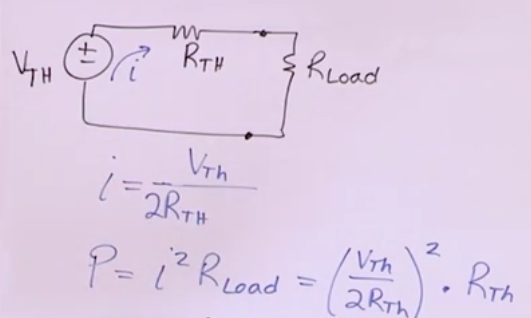 V_TH ± i R_TH R_Load
i = V_Th / 2R_TH
P = i² R_Load = (V_Th / 2R_Th)² · R_Th